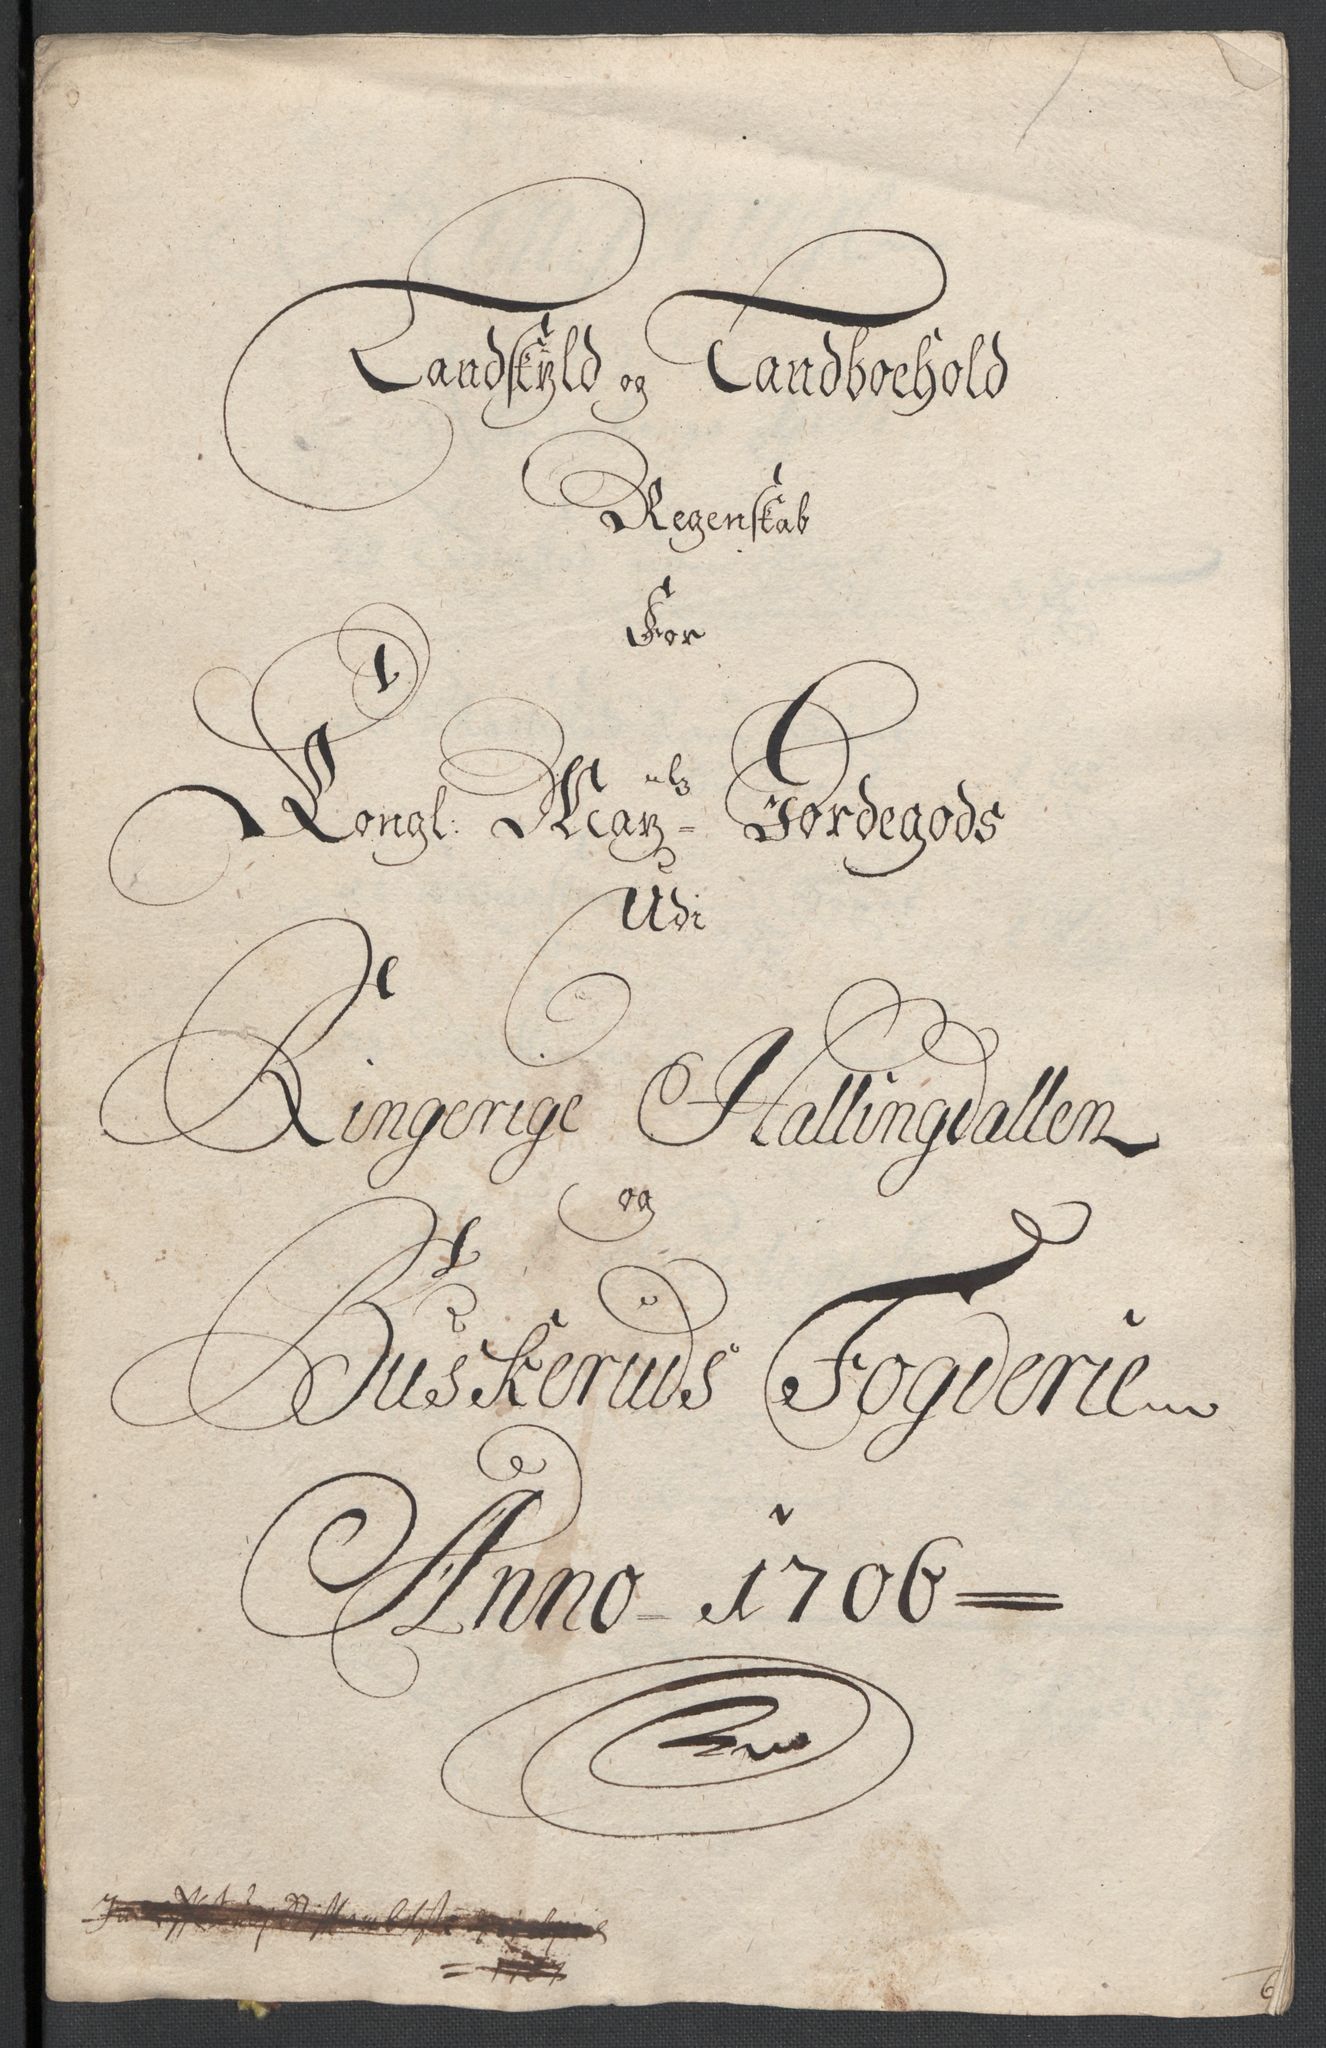 Landskyld og Landboehold
Regenskab
For
Kongl: May-tz Jordegods
Udi
Ringerige Hallingdallen
og
Buskeruds Fogderie
Anno - 1706 =
= 1707
6